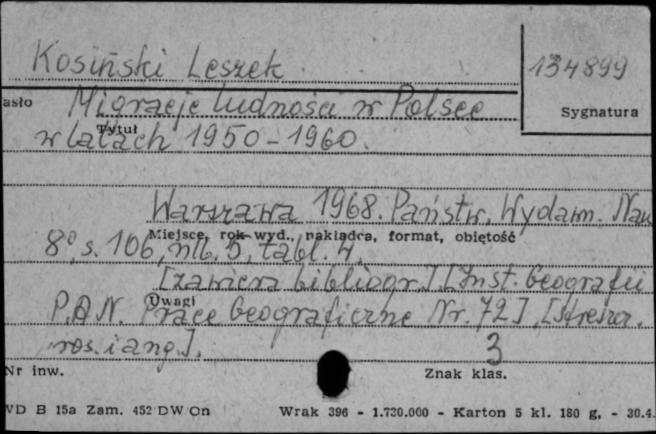 Kosiński Leszek
134899
asło Migracje ludności w Polsce
Sygnatura
Tytuł
w latach 1950-1960.
Warszawa 1968. Państw. Wydawn. Nau
Miejsce, rok wyd., nakładca, format, objętość
8°, s. 106, nlb. 5, tabl. 4.
[zawiera bibliogr.] [Inst. Geografii
Uwagi
P.A.N. Prace Geograficzne Nr. 72]. [Streszcz.
ros. i ang.].
3
Nr inw.
Znak klas.
VD B 15a Zam. 452 DW On Wrak 396 - 1.720.000 - Karton 5 kl. 180 g. - 30.4.